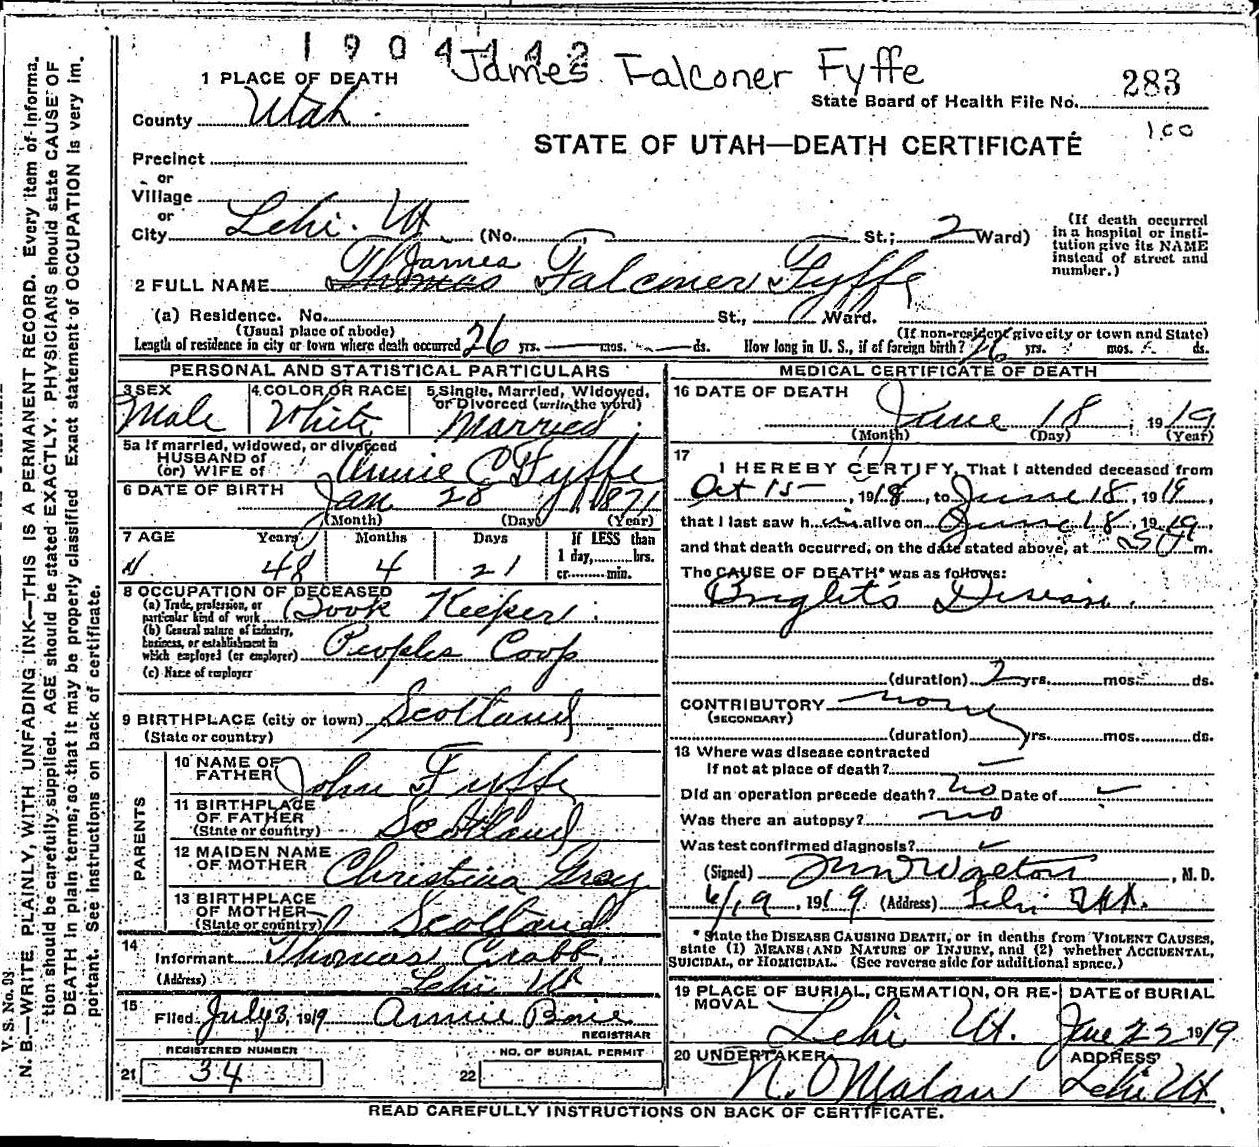 1904142
James Falconer Fyffe
1 PLACE OF DEATH
State Board of Health File No. 283
County Utah.
100
STATE OF UTAH—DEATH CERTIFICATE
Precinct
or
Village
or
City Lehi. Ut (No. St.; 2 Ward)
(If death occurred in a hospital or insti-
tution give its NAME
instead of street and
number.)
James
2 FULL NAME Thomas Falconer Fyffe
(a) Residence. No. St., Ward.
(Usual place of abode) (If non-resident give city or town and State)
Length of residence in city or town where death occurred 26 yrs. mos. ds. How long in U. S., if of foreign birth? 26 yrs. mos. ds.
PERSONAL AND STATISTICAL PARTICULARS
3 SEX
Male
4 COLOR OR RACE
White
5 Single, Married, Widowed,
or Divorced (write the word)
Married
5a If married, widowed, or divorced
HUSBAND of
(or) WIFE of Annie C Fyffe
6 DATE OF BIRTH
Jan 28 1871
(Month) (Day) (Year)
7 AGE Years Months Days If LESS than
1 day, hrs.
or min.
48 4 21
8 OCCUPATION OF DECEASED
(a) Trade, profession, or
particular kind of work Book Keeper
(b) General nature of industry,
business, or establishment in
which employed (or employer) Peoples Coop
(c) Name of employer
9 BIRTHPLACE (city or town) Scotland
(State or country)
PARENTS
10 NAME OF
FATHER John Fyffe
11 BIRTHPLACE
OF FATHER
(State or country) Scotland
12 MAIDEN NAME
OF MOTHER Christina Gray
13 BIRTHPLACE
OF MOTHER
(State or country) Scotland
14
Informant Thomas Crabb
(Address) Lehi Ut
15
Filed July 3, 1919 Annie Bone
REGISTRAR
REGISTERED NUMBER
21 34
NO. OF BURIAL PERMIT
22
MEDICAL CERTIFICATE OF DEATH
16 DATE OF DEATH
June 18, 1919
(Month) (Day) (Year)
17
I HEREBY CERTIFY, That I attended deceased from
Oct 15, 1918, to June 18, 1919,
that I last saw him alive on June 18, 1919
and that death occurred, on the date stated above, at m.
The CAUSE OF DEATH* was as follows:
Brights Disease.
(duration) 2 yrs. mos. ds.
CONTRIBUTORY none
(SECONDARY)
(duration) yrs. mos. ds.
18 Where was disease contracted
If not at place of death?
Did an operation precede death? no Date of
Was there an autopsy? no
Was test confirmed diagnosis?
(Signed) Walton, M. D.
6/19, 1919 (Address) Lehi Ut.
*State the DISEASE CAUSING DEATH, or in deaths from VIOLENT CAUSES,
state (1) MEANS AND NATURE OF INJURY, and (2) whether ACCIDENTAL,
SUICIDAL, or HOMICIDAL. (See reverse side for additional space.)
19 PLACE OF BURIAL, CREMATION, OR RE-
MOVAL
Lehi Ut.
DATE of BURIAL
June 22 1919
20 UNDERTAKER
N. O Malan
ADDRESS
Lehi Ut
READ CAREFULLY INSTRUCTIONS ON BACK OF CERTIFICATE.
V. S. No. 93
N. B.—WRITE PLAINLY, WITH UNFADING INK—THIS IS A PERMANENT RECORD. Every item of informa-
tion should be carefully supplied. AGE should be stated EXACTLY. PHYSICIANS should state CAUSE OF
DEATH in plain terms, so that it may be properly classified. Exact statement of OCCUPATION is very im-
portant. See instructions on back of certificate.